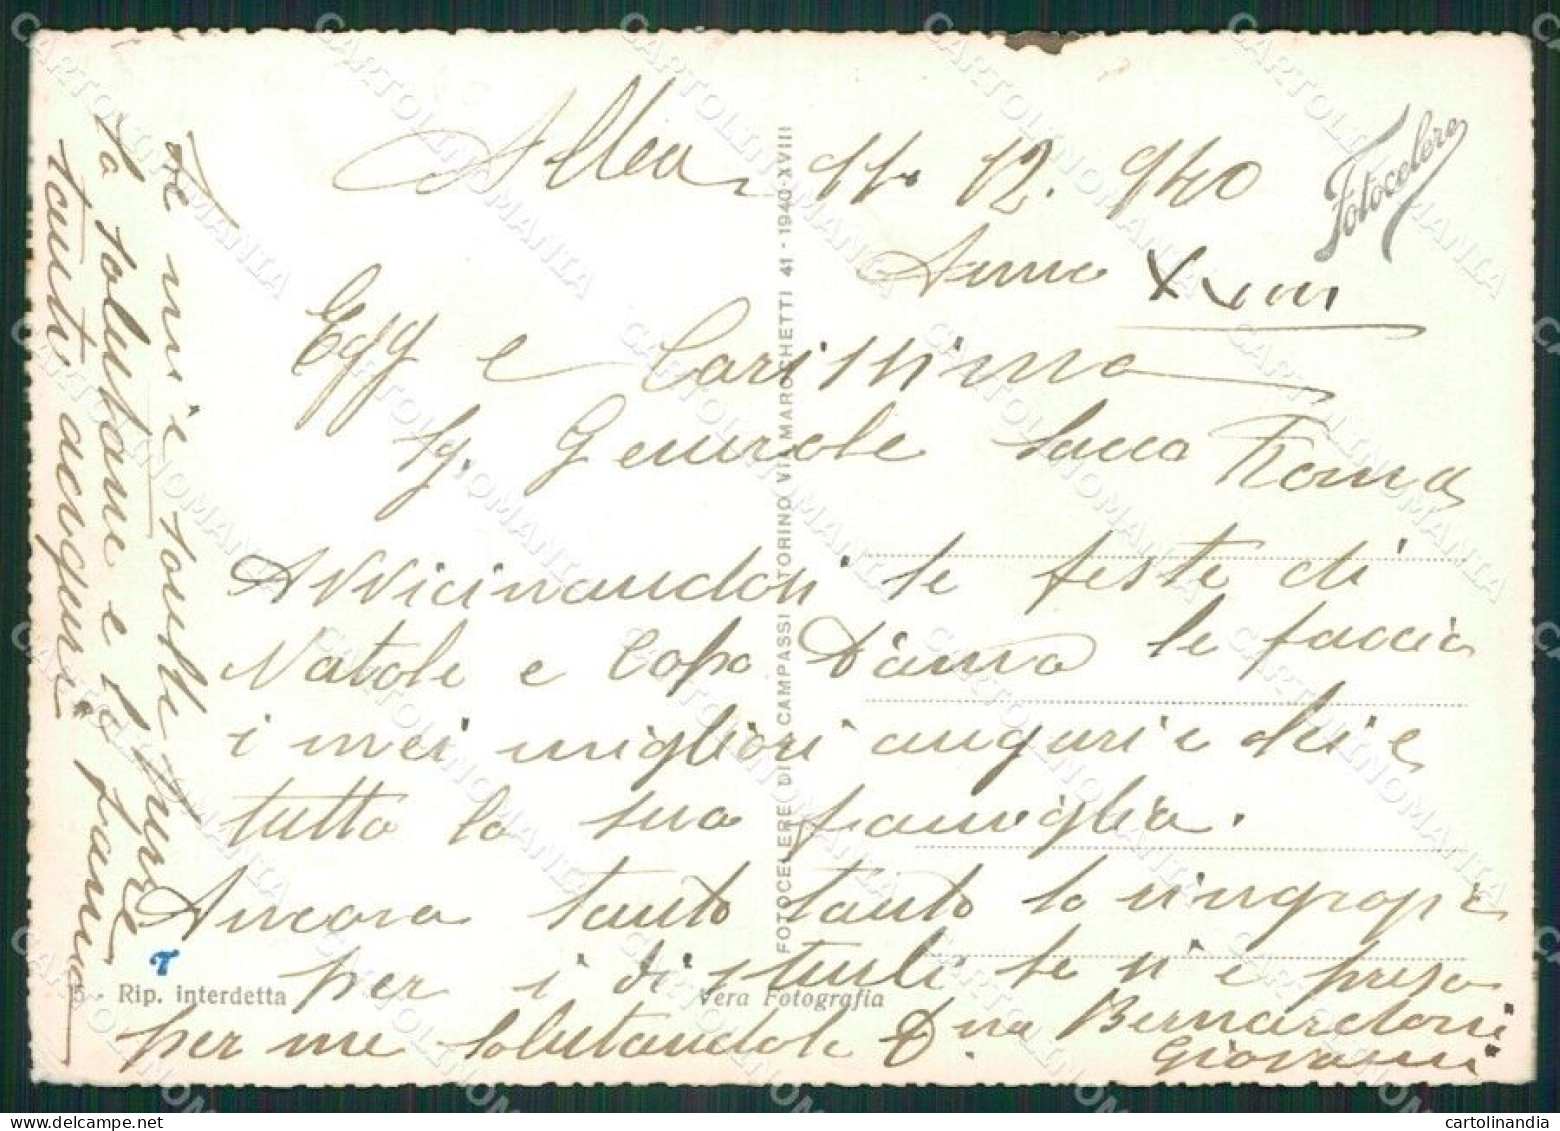 Allea, 11. 12. 940
Anno XVIII
Egg e Carissimo
Sg. Generale Sacco Roma
Avvicinandosi le feste di
Natale e Capo D'anno le faccio
i miei migliori auguri a lei e
tutta la sua famiglia.
Ancora tanto tanto la ringrazi
per i disturbi che si è preso
per me salutandola D. Bernardoni
Giovanni
Le mie sorelle pure
la salutano e le fanno
tanti auguri
Fotocelere
FOTOCELERE DI CAMPASSI - TORINO VIA MAROCHETTI 41 - 1940-XVIII
5 - Rip. interdetta
Vera Fotografia
CARTOLINANDIA
cartolinandia